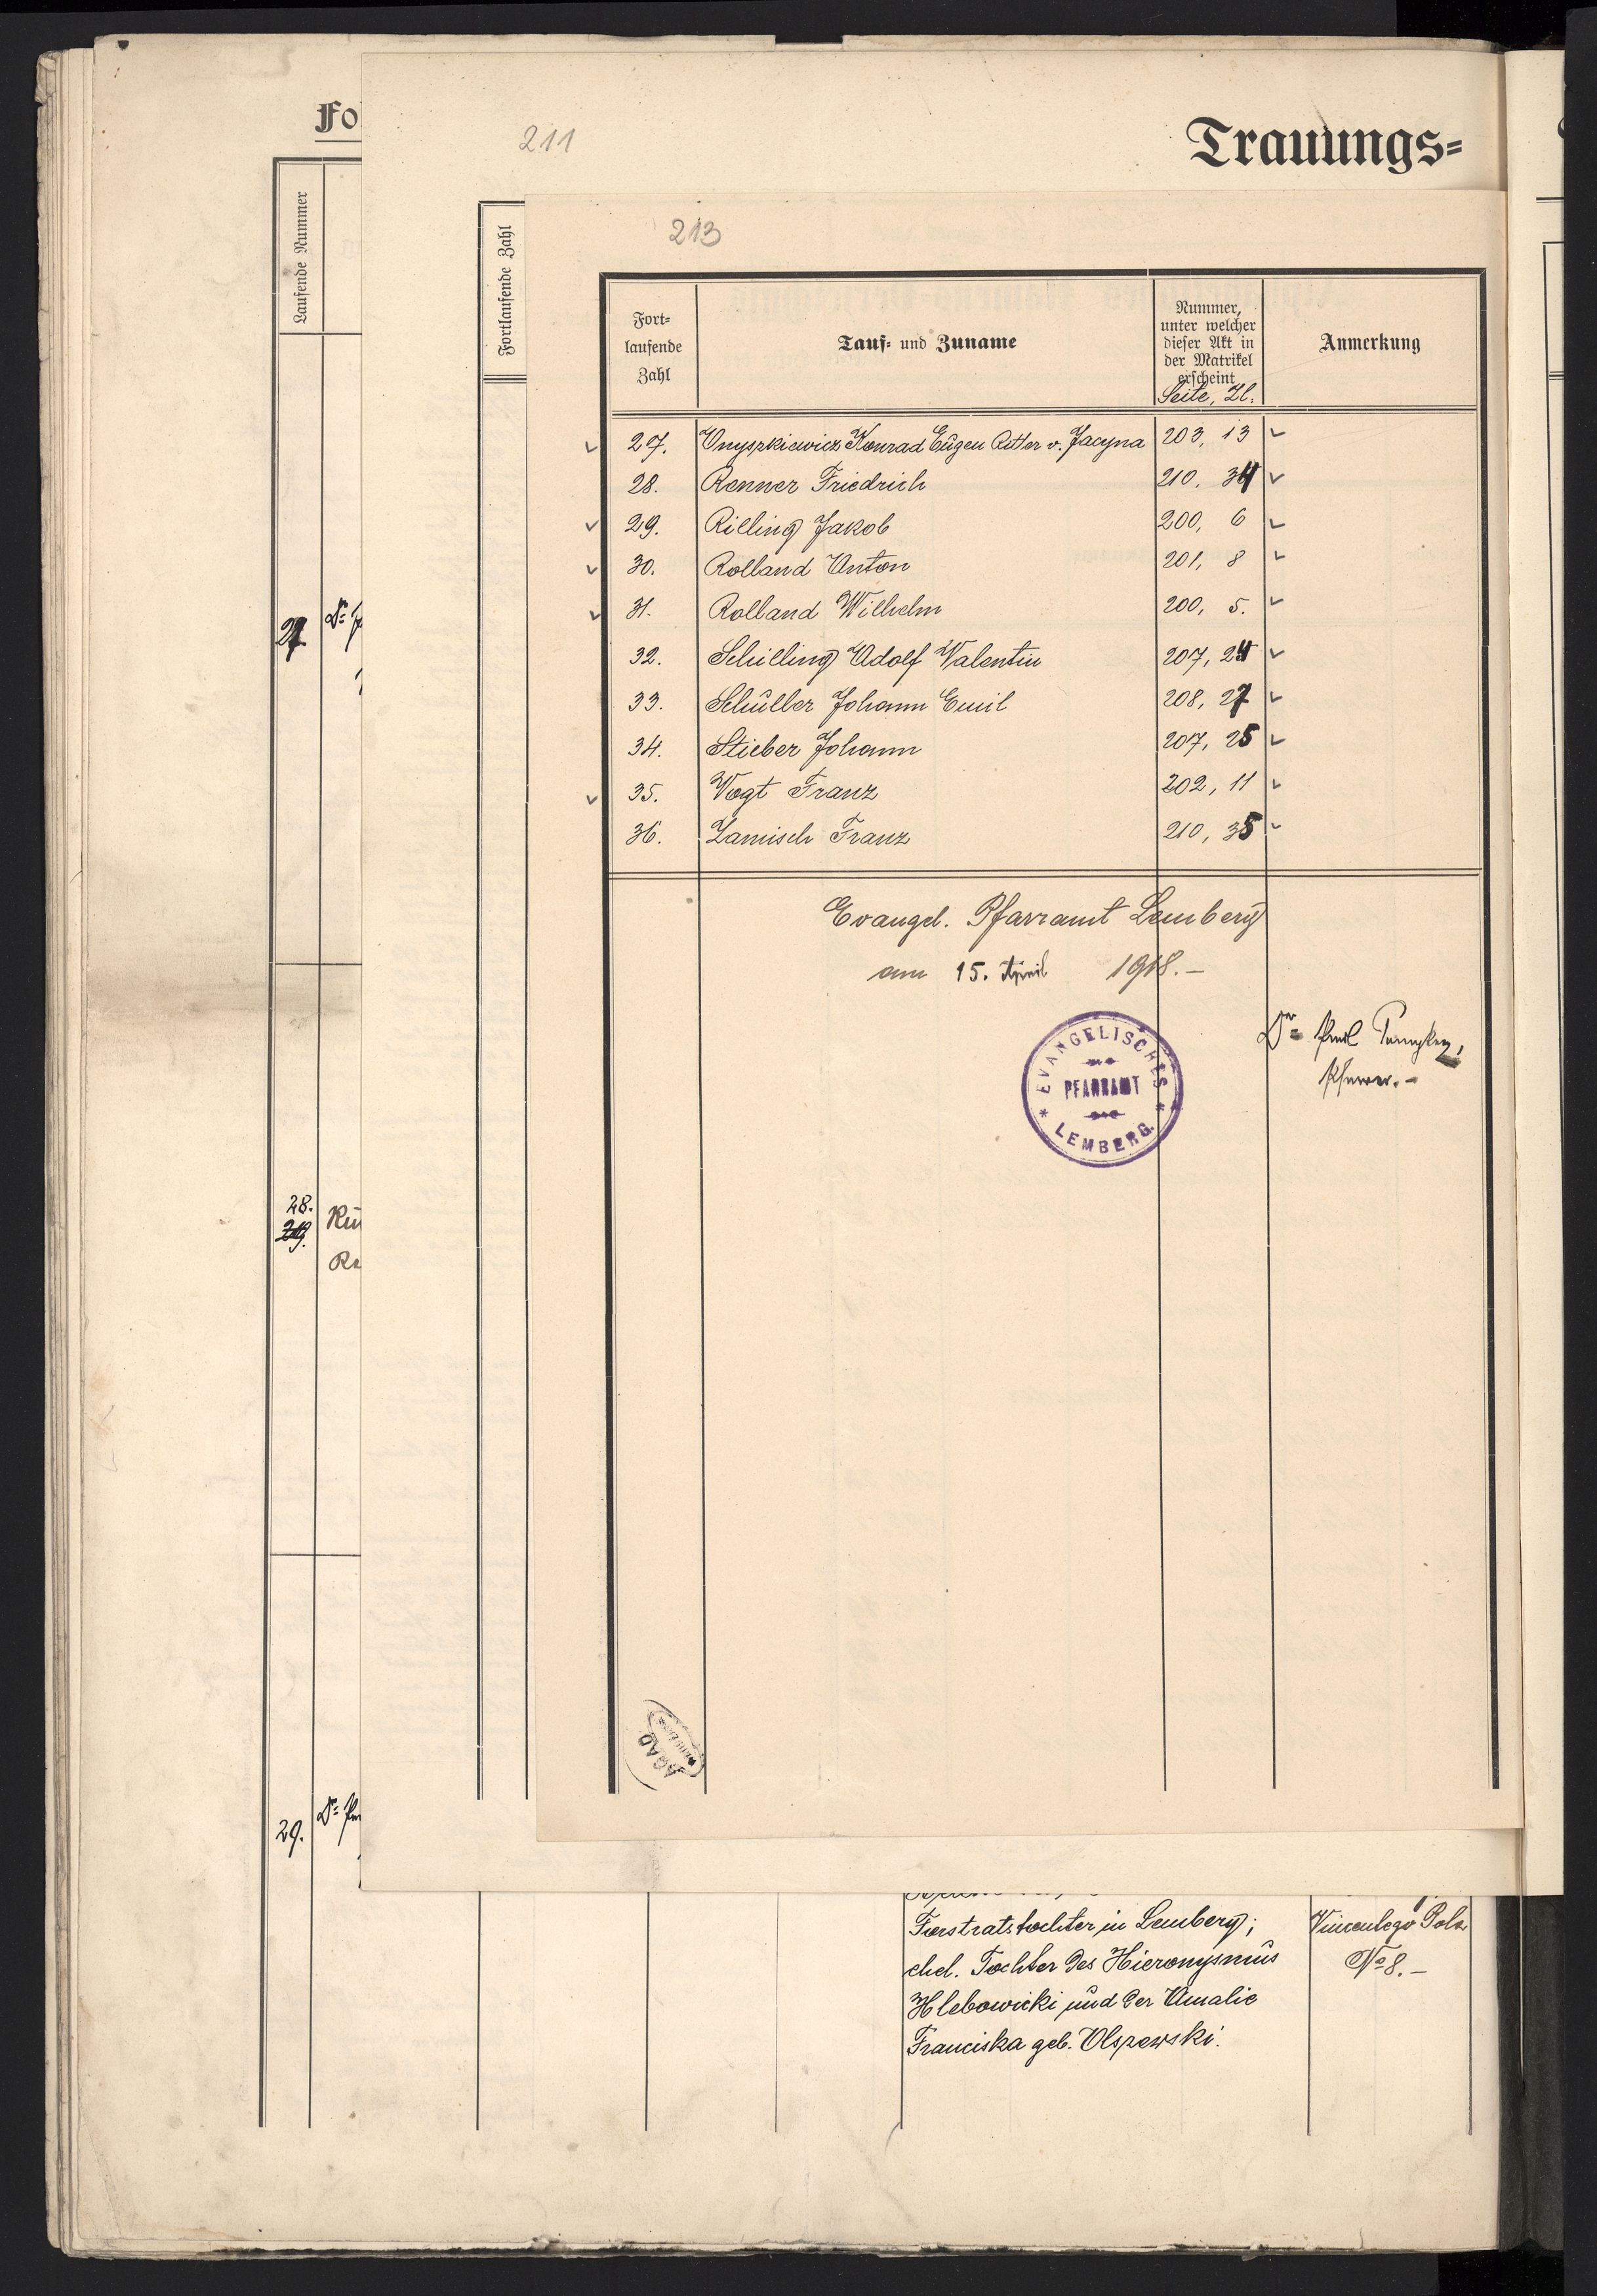 Fo
211
Trauungs=
Laufende Nummer
Fortlaufende Zahl
213
Fort=
laufende
Zahl
Tauf= und Zuname
Nummer,
unter welcher
dieser Akt in
der Matrikel
erscheint
Seite, Zl.
Anmerkung
27. Onyszkiewicz Konrad Eugen Ritter v. Jacyna 203, 13
28. Renner Friedrich 210, 34
29. Rilling Jakob 200, 6
30. Rolland Anton 201, 8
31. Rolland Wilhelm 200, 5.
32. Schilling Adolf Valentin 207, 24
33. Schüller Johann Emil 208, 27
34. Stieber Johann 207, 25
35. Vogt Franz 202, 11
36. Zamisch Franz 210, 35
Evangel. Pfarramt Lemberg
am 15. April 1918.-
EVANGELISCHES
PFARRAMT
LEMBERG
Dr
Pfarrer.-
27
Dr
28.
29.
Rü
Re
29.
Dr
AGAD
Forstratstochter in Lemberg;
ehel. Tochter des Hieronysmus
Hlebowicki und der Amalie
Franciska geb. Olszewski.
Vincentego Pola
No 8.-